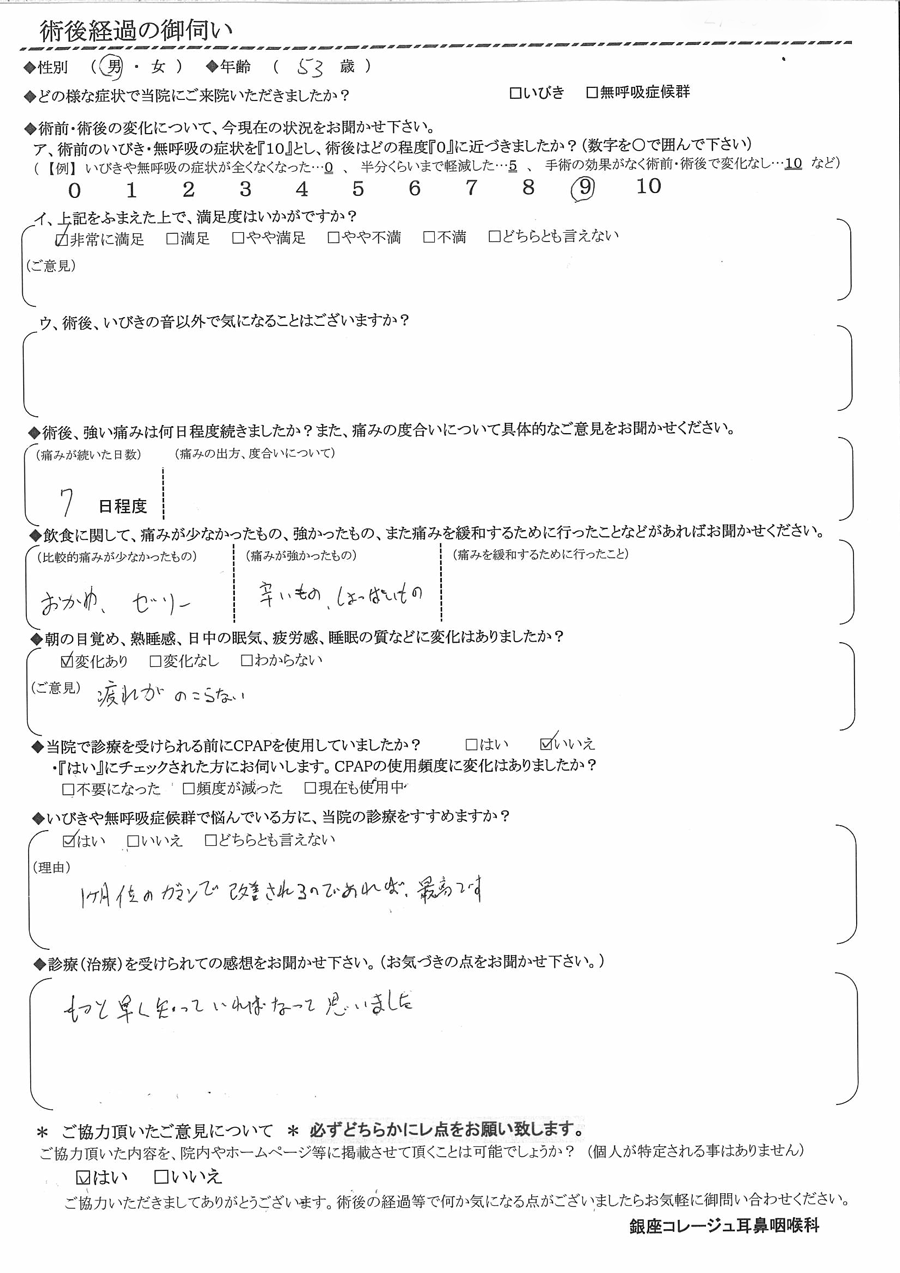 術後経過の御伺い
◆性別 (男・女) ◆年齢 ( 53 歳 )
◆どの様な症状で当院にご来院いただきましたか? □いびき □無呼吸症候群
◆術前・術後の変化について、今現在の状況をお聞かせ下さい。
ア、術前のいびき・無呼吸の症状を『10』とし、術後はどの程度『0』に近づきましたか?(数字を○で囲んで下さい)
(【例】いびきや無呼吸の症状が全くなくなった…0 、 半分くらいまで軽減した…5 、 手術の効果がなく術前・術後で変化なし…10 など)
0 1 2 3 4 5 6 7 8 9 10
イ、上記をふまえた上で、満足度はいかがですか?
☑非常に満足 □満足 □やや満足 □やや不満 □不満 □どちらとも言えない
(ご意見)
ウ、術後、いびきの音以外で気になることはございますか?
◆術後、強い痛みは何日程度続きましたか?また、痛みの度合いについて具体的なご意見をお聞かせください。
(痛みが続いた日数) (痛みの出方、度合いについて)
7 日程度
◆飲食に関して、痛みが少なかったもの、強かったもの、また痛みを緩和するために行ったことなどがあればお聞かせください。
(比較的痛みが少なかったもの) (痛みが強かったもの) (痛みを緩和するために行ったこと)
おかゆ、ゼリー 辛いもの、しょっぱいもの
◆朝の目覚め、熟睡感、日中の眠気、疲労感、睡眠の質などに変化はありましたか?
☑変化あり □変化なし □わからない
(ご意見) 疲れがのこらない
◆当院で診療を受けられる前にCPAPを使用していましたか? □はい ☑いいえ
・『はい』にチェックされた方にお伺いします。CPAPの使用頻度に変化はありましたか?
□不要になった □頻度が減った □現在も使用中
◆いびきや無呼吸症候群で悩んでいる方に、当院の診療をすすめますか?
☑はい □いいえ □どちらとも言えない
(理由)
1ヶ月位のガマンで改善されるのであれば、最高です
◆診療(治療)を受けられての感想をお聞かせ下さい。(お気づきの点をお聞かせ下さい。)
もっと早く知っていればなって思いました
* ご協力頂いたご意見について * 必ずどちらかにレ点をお願い致します。
ご協力頂いた内容を、院内やホームページ等に掲載させて頂くことは可能でしょうか? (個人が特定される事はありません)
☑はい □いいえ
ご協力いただきましてありがとうございます。術後の経過等で何か気になる点がございましたらお気軽に御問い合わせください。
銀座コレージュ耳鼻咽喉科